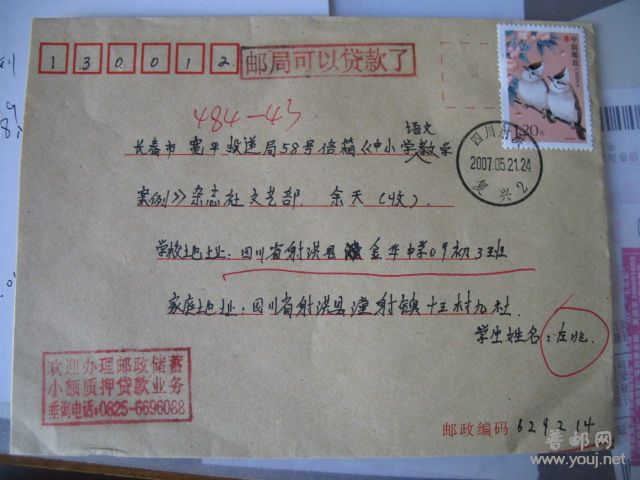 130012
邮局可以贷款了
中国邮政 CHINA
1.20元
484-43
四川射洪
2007.05.21.24
复兴2
语文
长春市 宽平投递局58号信箱《中小学教学
案例》杂志社文艺部 余天(收)
学校地址:四川省射洪县金华中学09初3班
家庭地址:四川省射洪县潼射镇十三村九社
学生姓名:左兆
欢迎办理邮政储蓄
小额质押贷款业务
垂询电话:0825-6696088
邮政编码 629214
善邮网
www.youj.net